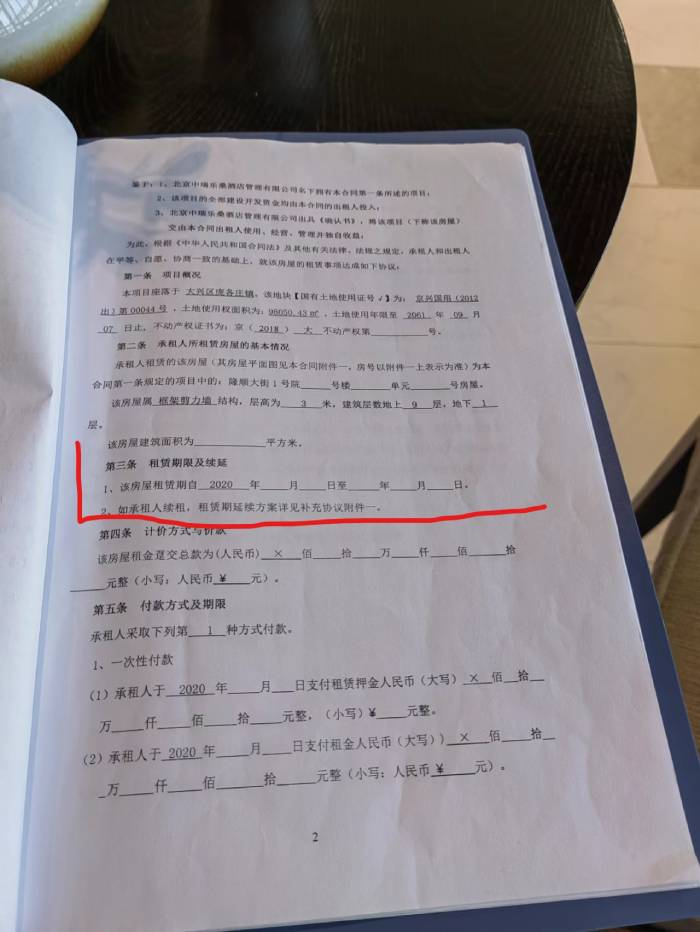 鉴于：1、北京中瑞乐桑酒店管理有限公司名下拥有本合同第一条所述的项目；
2、该项目的全部建设开发资金均由本合同的出租人投入；
3、北京中瑞乐桑酒店管理有限公司出具《确认书》，将该项目（下称该房屋）
交由本合同出租人使用、经营、管理并独自收益；
为此，根据《中华人民共和国合同法》及其他有关法律、法规之规定，承租人和出租人
在平等、自愿、协商一致的基础上，就该房屋的租赁事项达成如下协议：
第一条 项目概况
本项目座落于 大兴区庞各庄镇，该地块【国有土地使用证号√】为： 京兴国用（2012
出）第00044号 ，土地使用权面积为：98050.43㎡ ，土地使用年限至 2061 年 09 月
07 日止，不动产权证书为：京（ 2018 ） 大 不动产权第______号。
第二条 承租人所租赁房屋的基本情况
承租人租赁的该房屋（其房屋平面图见本合同附件一，房号以附件一上表示为准）为本
合同第一条规定的项目中的：隆顺大街1号院____号楼____单元____号房屋。
该房屋属 框架剪力墙 结构，层高为 3 米，建筑层数地上 9 层，地下 1
层。
该房屋建筑面积为__________平方米。
第三条 租赁期限及续延
1、该房屋租赁期自 2020 年____月____日至____年____月____日。
2、如承租人续租，租赁期延续方案详见补充协议附件一。
第四条 计价方式与价款
该房屋租金趸交总款为(人民币) × 佰____拾____万____仟____佰____拾
____元整（小写：人民币￥____元）。
第五条 付款方式及期限
承租人采取下列第 1 种方式付款。
1、一次性付款
（1）承租人于 2020 年____月____日支付租赁押金人民币（大写） × 佰__拾__
万____仟____佰____拾____元整，（小写）￥____元整。
（2）承租人于 2020 年____月____日支付租金人民币（大写）） × 佰__拾__
_万____仟____佰____拾____元整（小写：人民币￥____元）。
2